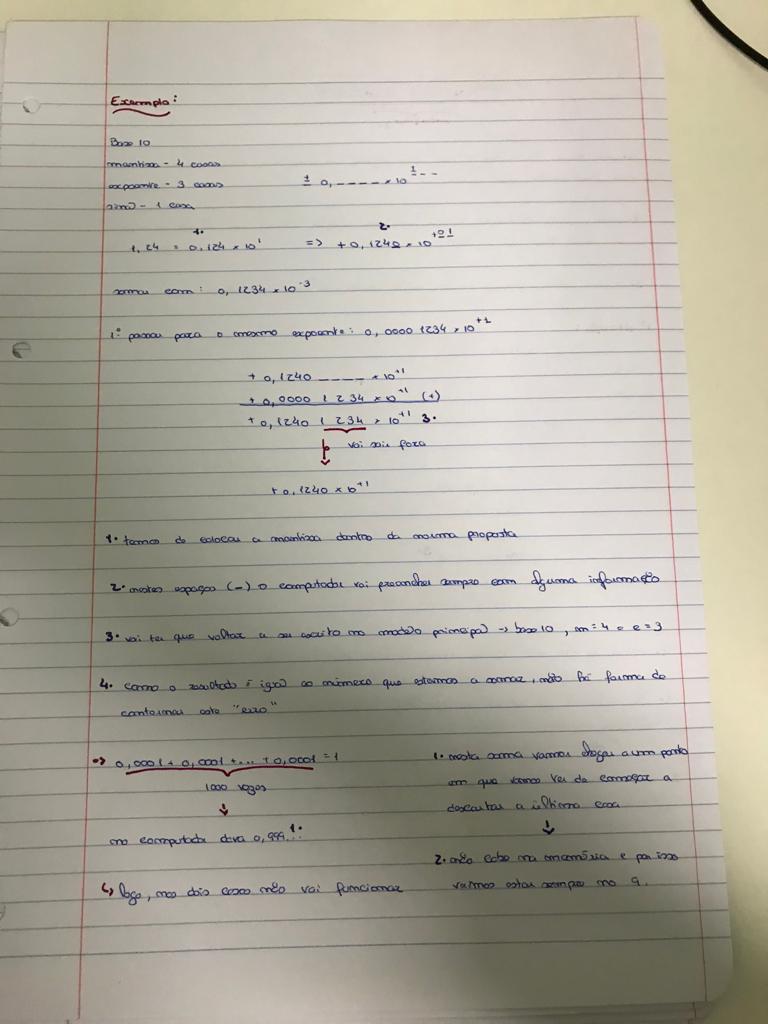 Exemplo:
Base 10
mantissa - 4 casas
expoente - 3 casas ± 0, _ _ _ _ × 10 ± _ _
sinal - 1 casa
1. 2.
1,24 = 0,124 × 10¹ => + 0,1240 × 10⁺⁰¹
somar com: 0,1234 × 10⁻³
1º passar para o mesmo expoente: 0,0000 1234 × 10⁺¹
+ 0,1240 _ _ _ _ × 10⁺¹
+ 0,0000 1 234 × 10⁺¹ (+)
+ 0,1240 1 234 × 10⁺¹ 3.
vai sair fora
+ 0,1240 × 10⁺¹
1. temos de colocar a mantissa dentro da norma proposta
2. nestes espaços (-) o computador vai preencher sempre com alguma informação
3. vai ter que voltar a ser escrito no modelo principal → base 10, m = 4 e e = 3
4. como o resultado é igual ao número que estamos a somar, não há forma de
contornar este "erro"
=> 0,0001 + 0,0001 + ... + 0,0001 = 1
1000 vezes
↓
no computador dava 0,999... 1.
↳ logo, nos dois casos não vai funcionar
1. nesta soma vamos chegar a um ponto
em que vamos ter de começar a
descartar a última casa
↓
2. não cabe na memória e por isso
vamos estar sempre no 9.